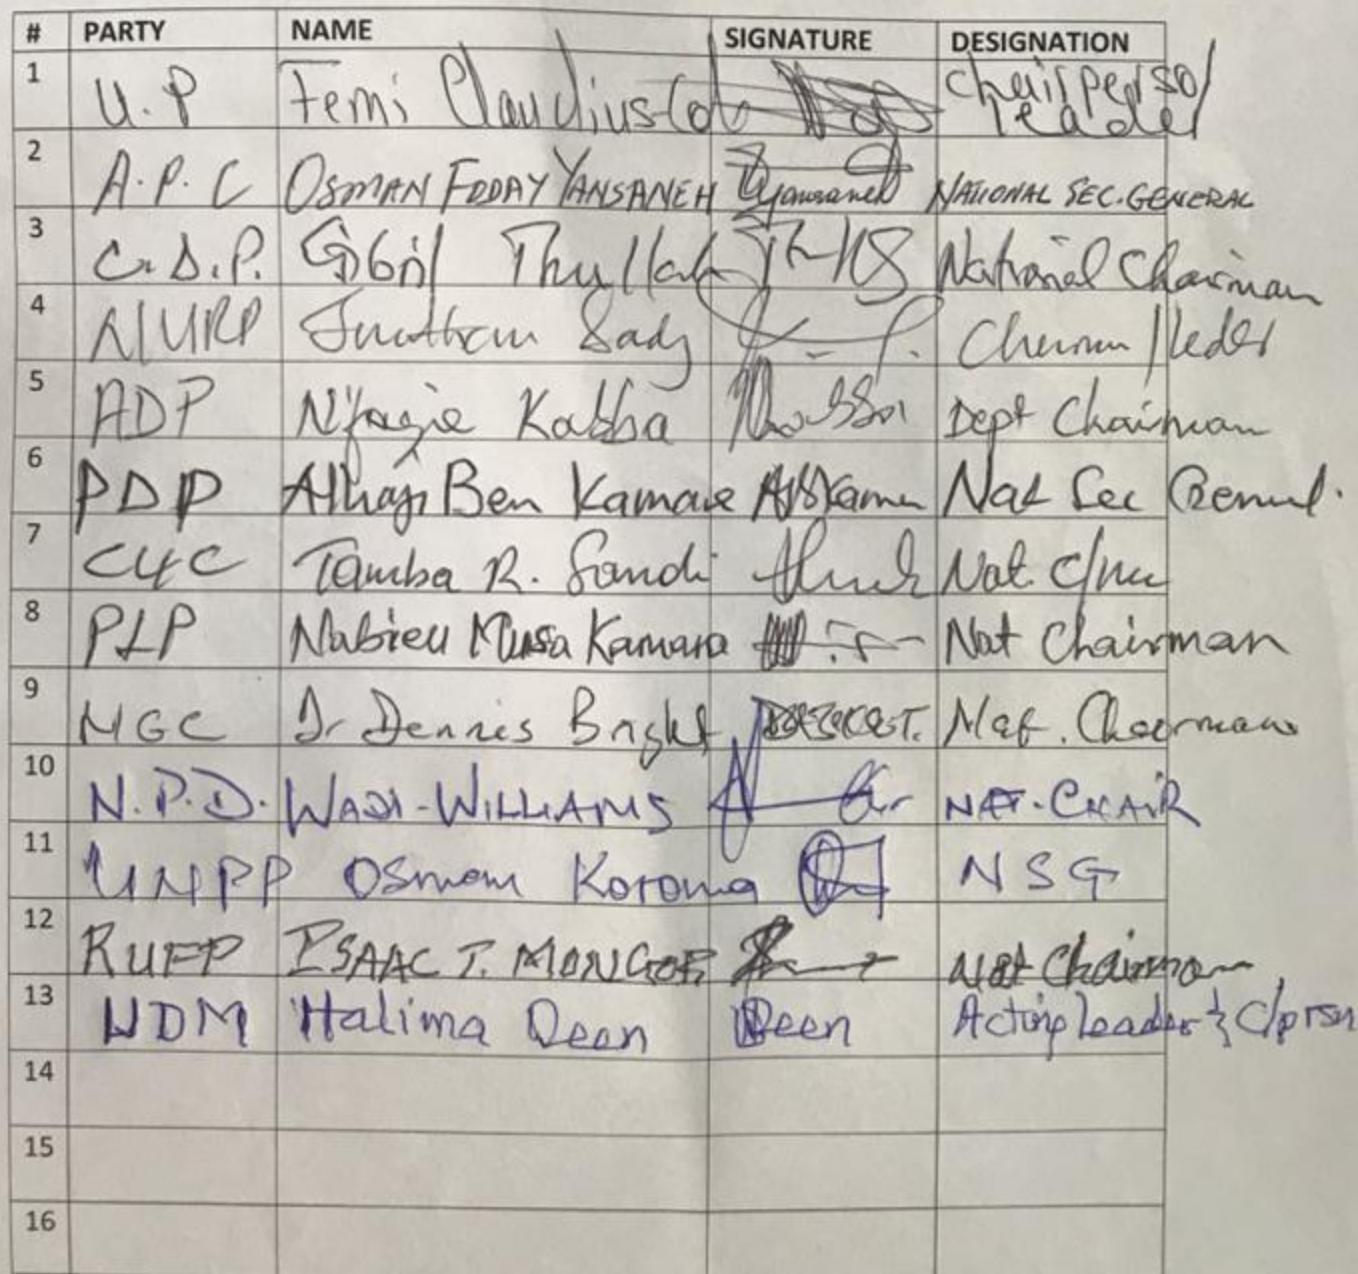 # PARTY NAME SIGNATURE DESIGNATION
1 U.P Femi Claudius-Cole Chairperso/
leader
2 A.P.C OSMAN FODAY YANSANEH Yansaneh NATIONAL SEC.GENERAL
3 C.D.P. Gibril Thullah National Chairman
4 NURP
5 ADP N'fagie Kabba Dept Chairman
6 PDP Alhaji Ben Kamara Nat Sec
7 CYC Tamba R. Sandi Nat.
8 PLP Nabieu Musa Kamara Nat Chairman
9 NGC Dr Dennis Bright Nat. Chairman
10 N.P.D. WADI-WILLIAMS NAT.CHAIR
11 UNPP Osman Koroma NSG
12 RUFP ISAAC T. MONGOR Nat Chairman
13 NDM Halima Deen Deen Acting leader & C/prsn
14
15
16